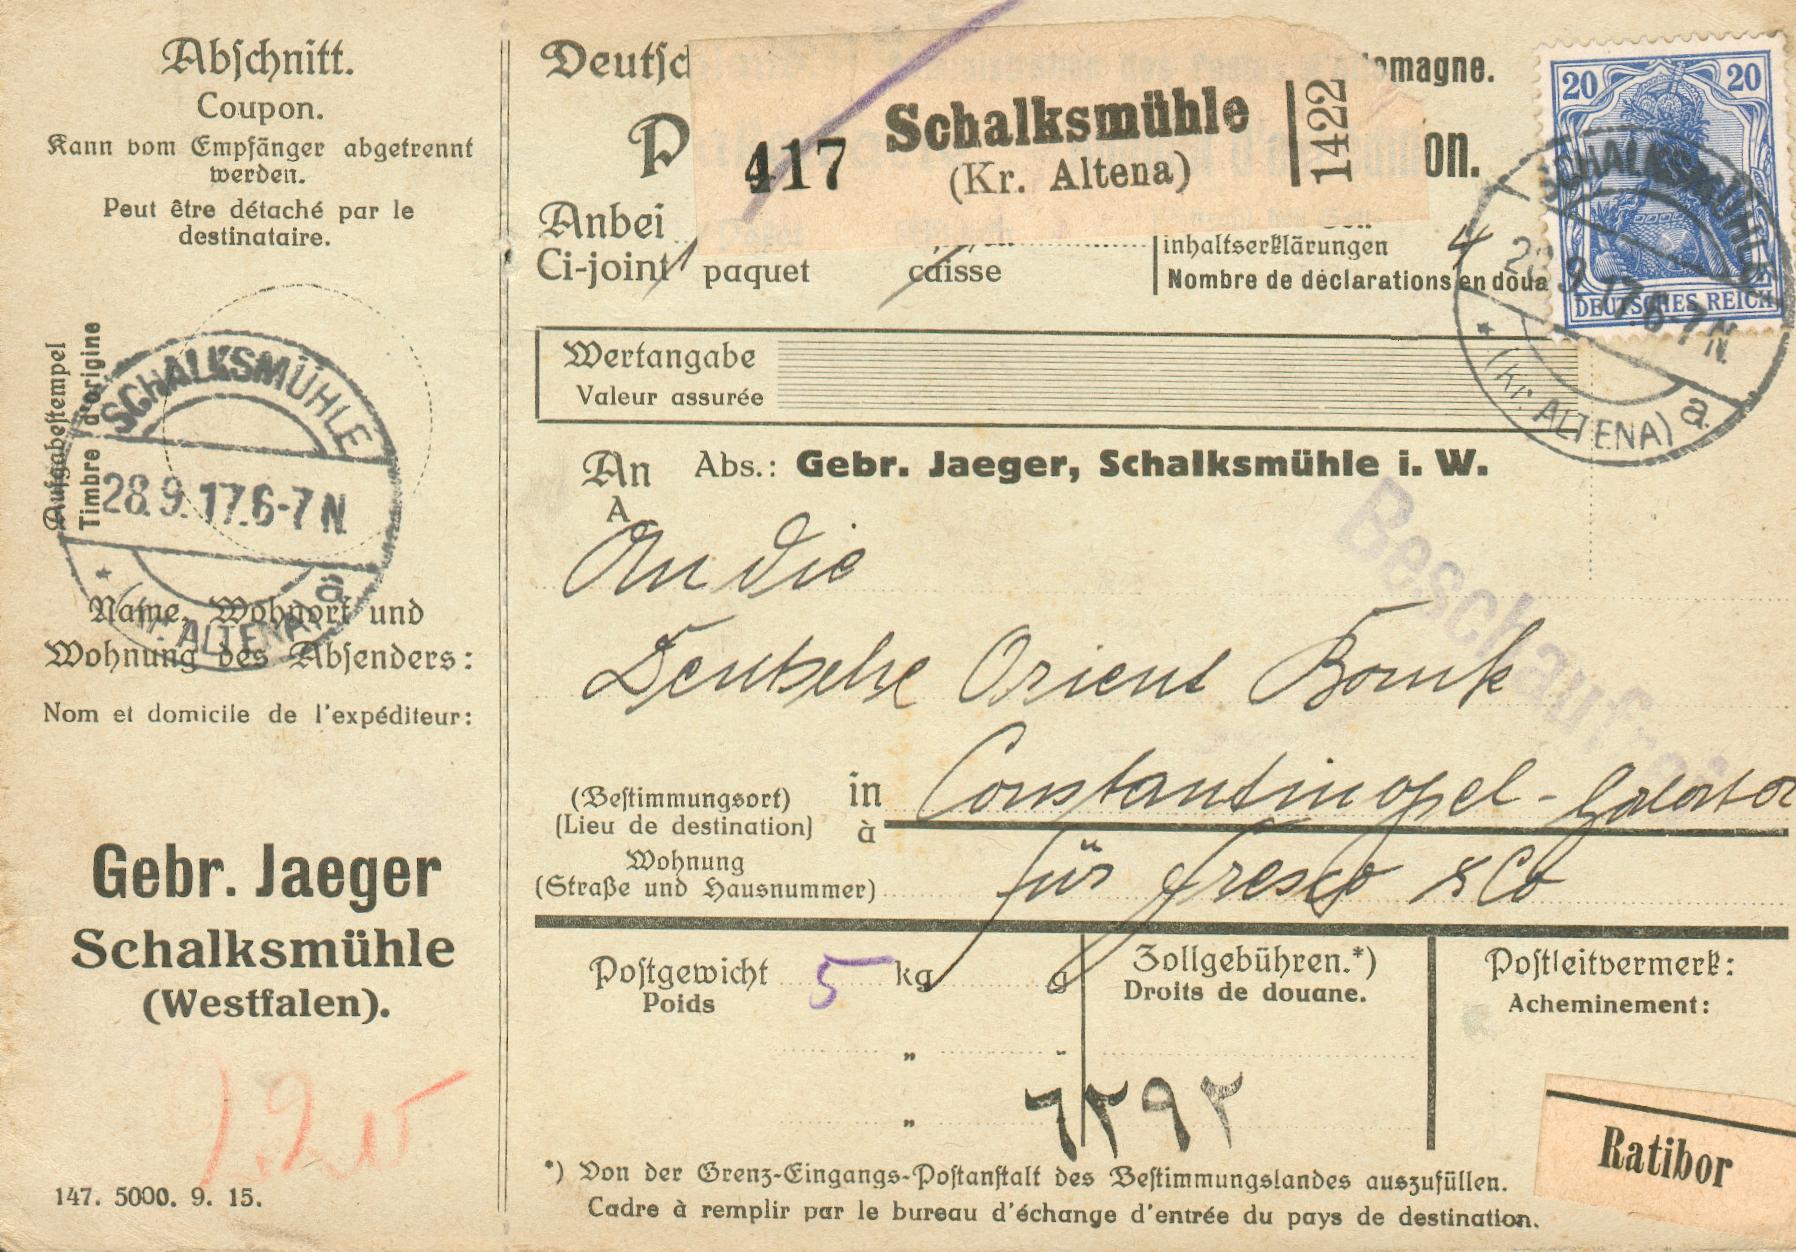 Abschnitt.
Coupon.
Kann vom Empfänger abgetrennt
werden.
Peut être détaché par le
destinataire.
Aufgabestempel
Timbre d'origine
SCHALKSMÜHLE
28.9.17.6-7N
* (Kr. ALTENA) a
Name, Wohnort und
Wohnung des Absenders:
Nom et domicile de l'expéditeur:
Gebr. Jaeger
Schalksmühle
(Westfalen).
147. 5000. 9. 15.
417 Schalksmühle 1422
(Kr. Altena)
20 20
DEUTSCHES REICH
SCHALKSMÜHLE
28.9.17.6-7N.
* (Kr. ALTENA) a
Anbei
Ci-joint paquet caisse
inhaltserklärungen 4
Nombre de déclarations en doua
Wertangabe
Valeur assurée
An Abs.: Gebr. Jaeger, Schalksmühle i. W.
A
Beschaufrei
An die
Deutsche Orient Bank
(Bestimmungsort) in Constantinopel - Galata
(Lieu de destination) à
Wohnung für Fresco & Co
(Straße und Hausnummer)
Postgewicht 5 kg g
Poids
Zollgebühren.*)
Droits de douane.
Postleitvermerk:
Acheminement:
٦٢٩٢
Ratibor
*) Von der Grenz-Eingangs-Postanstalt des Bestimmungslandes auszufüllen.
Cadre à remplir par le bureau d'échange d'entrée du pays de destination.